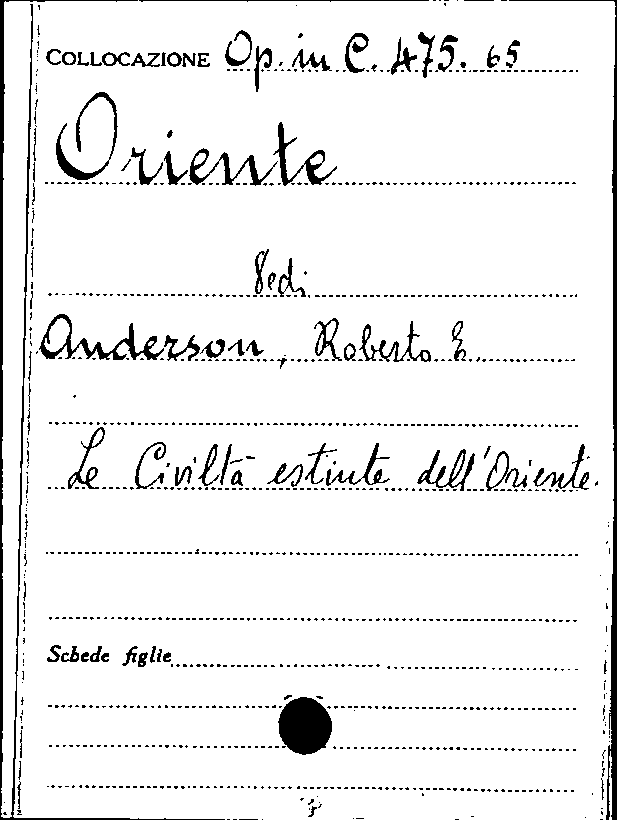 COLLOCAZIONE Op. in C. 475. 65
Oriente
Vedi
Anderson, Roberto E.
Le Civiltà estinte dell'Oriente.
Schede figlie